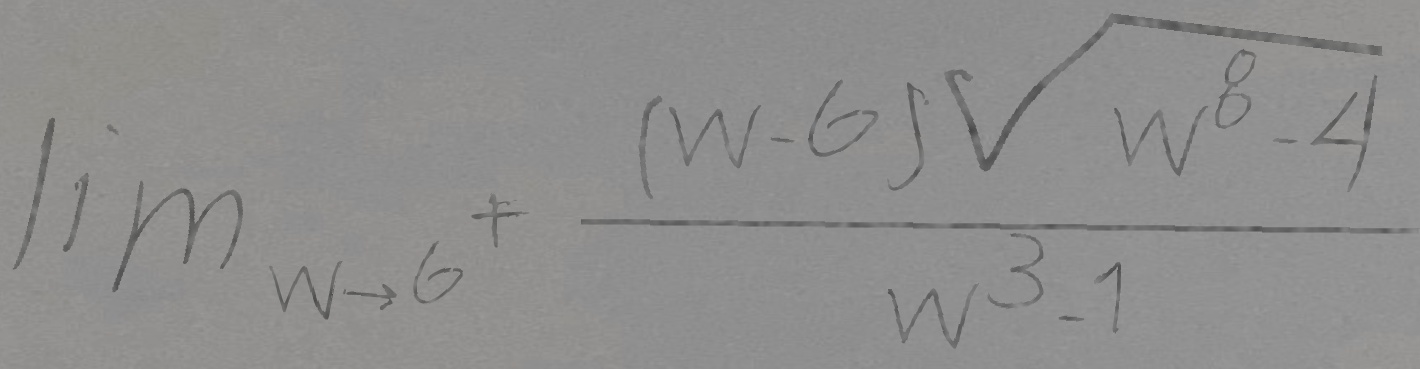 \lim_{w \to 6^+} \frac{(w-6)\sqrt{w^8-4}}{w^3-1}